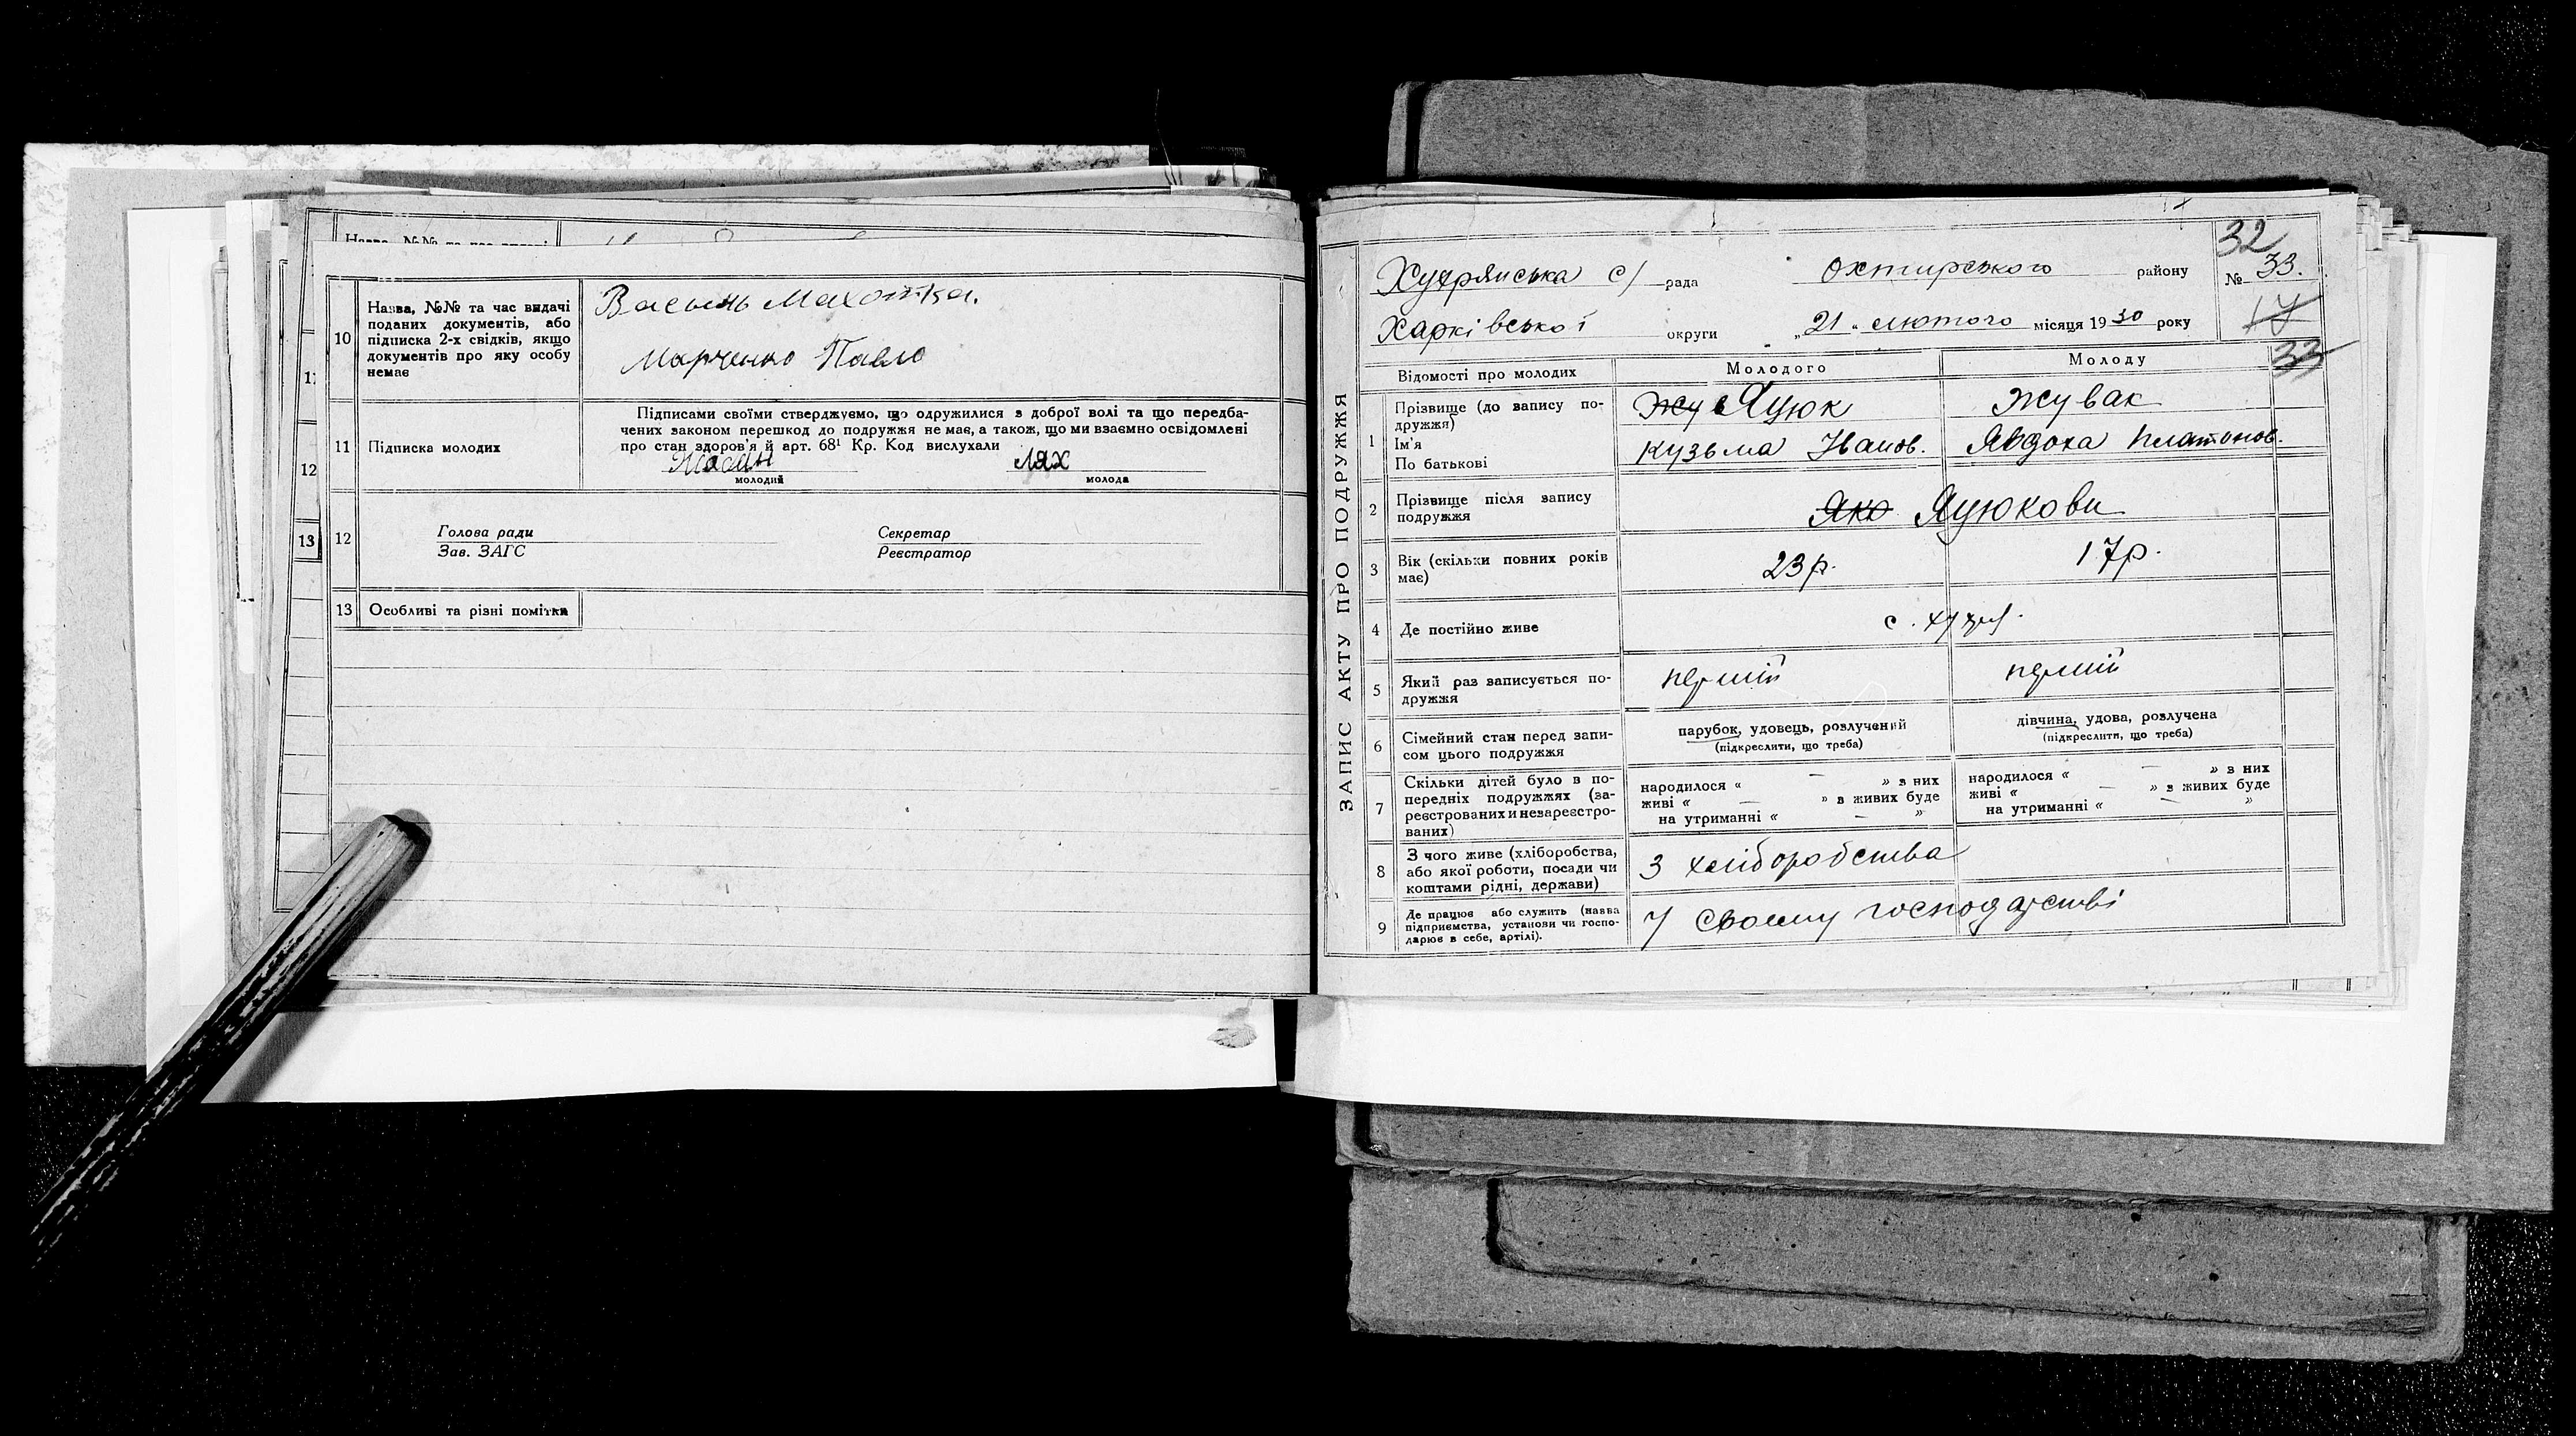 10
Назва, №№ та час видачі
поданих документів, або
підписка 2-х свідків, якщо
документів про яку особу
немає
Василь Махотка.
Марченко Павло
11
Підписка молодих
Підписами своїми стверджуємо, що одружилися з доброї волі та що передба-
чених законом перешкод до подружжя не має, а також, що ми взаємно освідомлені
про стан здоров'я й арт. 68¹ Кр. Код вислухали
Лях
молодий
молода
12
Голова ради
Зав. ЗАГС
Секретар
Реєстратор
13
Особливі та різні помітки
11
12
13
ЗАПИС АКТУ ПРО ПОДРУЖЖЯ
32
Хухрянська с/ рада Охтирського району
№ 33.
Харківської округи „21“ лютого місяця 1930 року
17
33
Відомості про молодих
Молодого
Молоду
1
Прізвище (до запису по-
дружжя)
Ім'я
По батькові
Яцюк
Кузьма Іванов.
Жувак
Явдоха Платонов.
2
Прізвище після запису
подружжя
Яцюкови
3
Вік (скільки повних років
має)
23р.
17р.
4
Де постійно живе
с.
5
Який раз записується по-
дружжя
перший
перший
6
Сімейний стан перед запи-
сом цього подружжя
парубок, удовець, розлучений
(підкреслити, що треба)
дівчина, удова, розлучена
(підкреслити, що треба)
7
Скільки дітей було в по-
передніх подружжях (за-
реєстрованих и незареєстро-
ваних)
народилося « — » з них
живі « — » в живих буде
на утриманні « — »
народилося « — » в них
живі « — » з живих буде
на утриманні « — »
8
З чого живе (хліборобства,
або якої роботи, посади чи
коштами рідні, держави)
З хліборобства
9
Де працює або служить (назва
підприємства, установи чи госпо-
дарює в себе, артілі).
У своєму господарстві